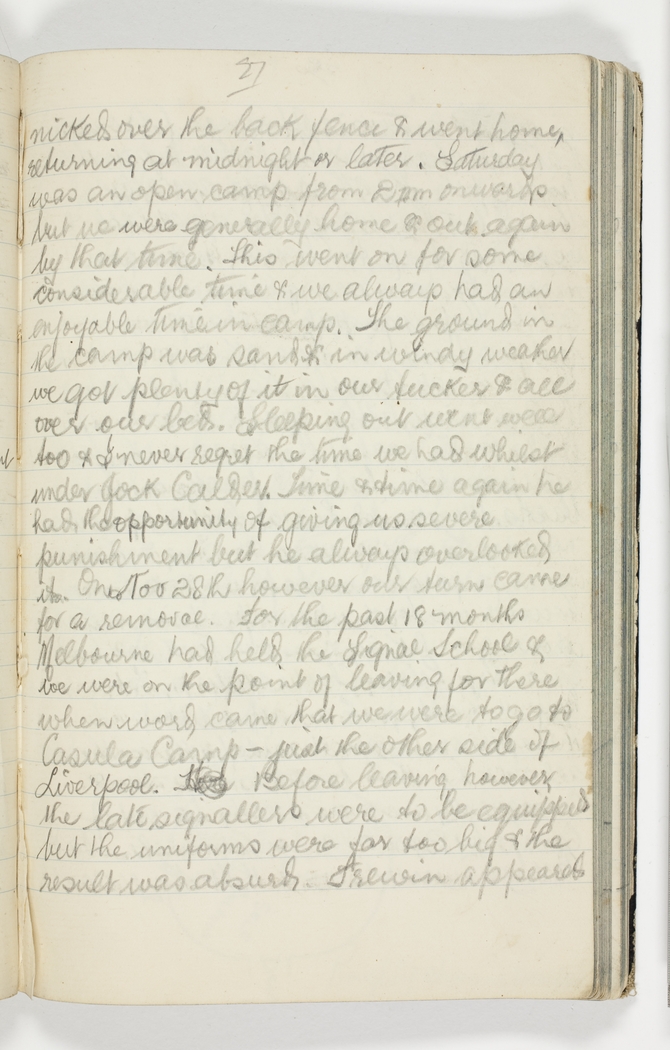 27
nicked over the back fence & went home,
returning at midnight or later. Saturday
was an open camp from 2 pm onwards
but we were generally home & out again
by that time. This went on for some
considerable time & we always had an
enjoyable time in camp. The ground in
the camp was sand & in windy weather
we got plenty of it in our tucker & all
over our bed. Sleeping out went well
too & I never regret the time we had whilst
under Jock Calder. Time & time again he
had the opportunity of giving us severe
punishment but he always overlooked
it. On Nov 28th however our turn came
for a removal. For the past 18 months
Melbourne had held the Signal School &
we were on the point of leaving for there
when word came that we were to go to
Casula Camp – just the other side of
Liverpool. Before leaving however
the late signallers were to be equipped
but the uniforms were far too big & the
result was absurd. Trewin appeared